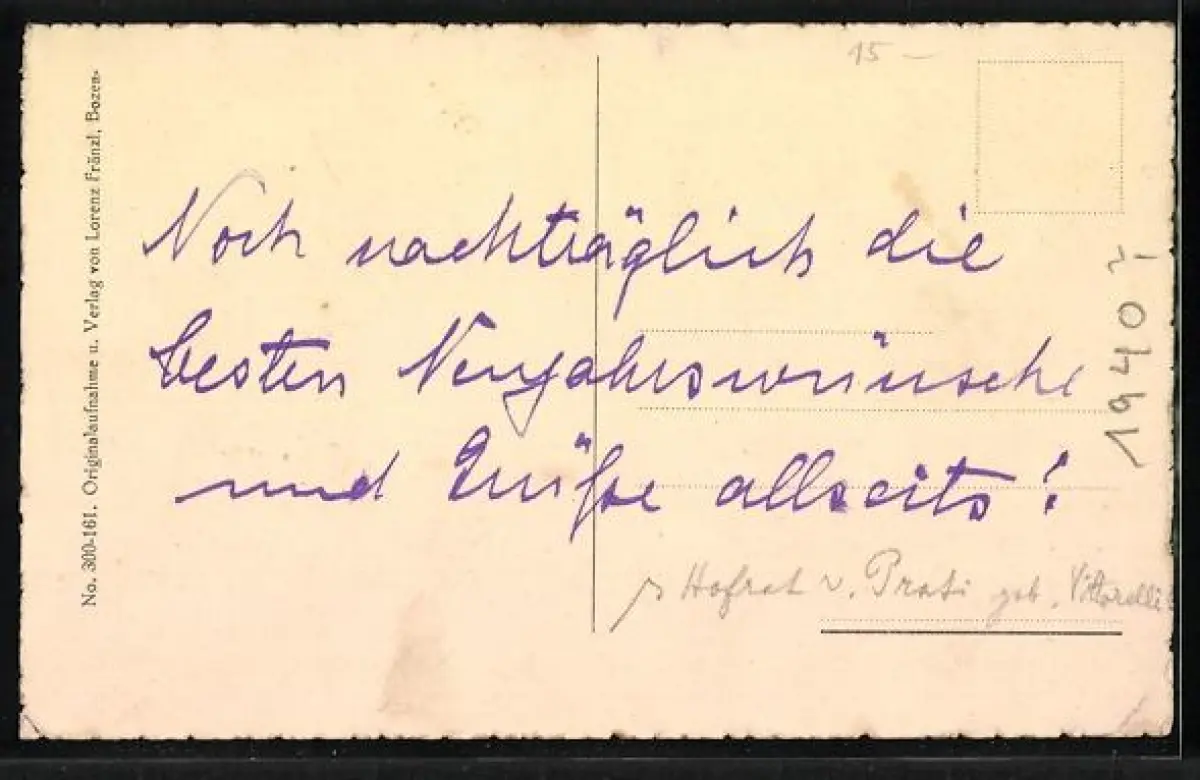 15 –
No. 300-161. Originalaufnahme u. Verlag von Lorenz Fränzl, Bozen-
Noch nachträglich die
besten Neujahrswünsche
und Grüße allseits!
Hofrat v. Prati geb. Vittorelli
1940?